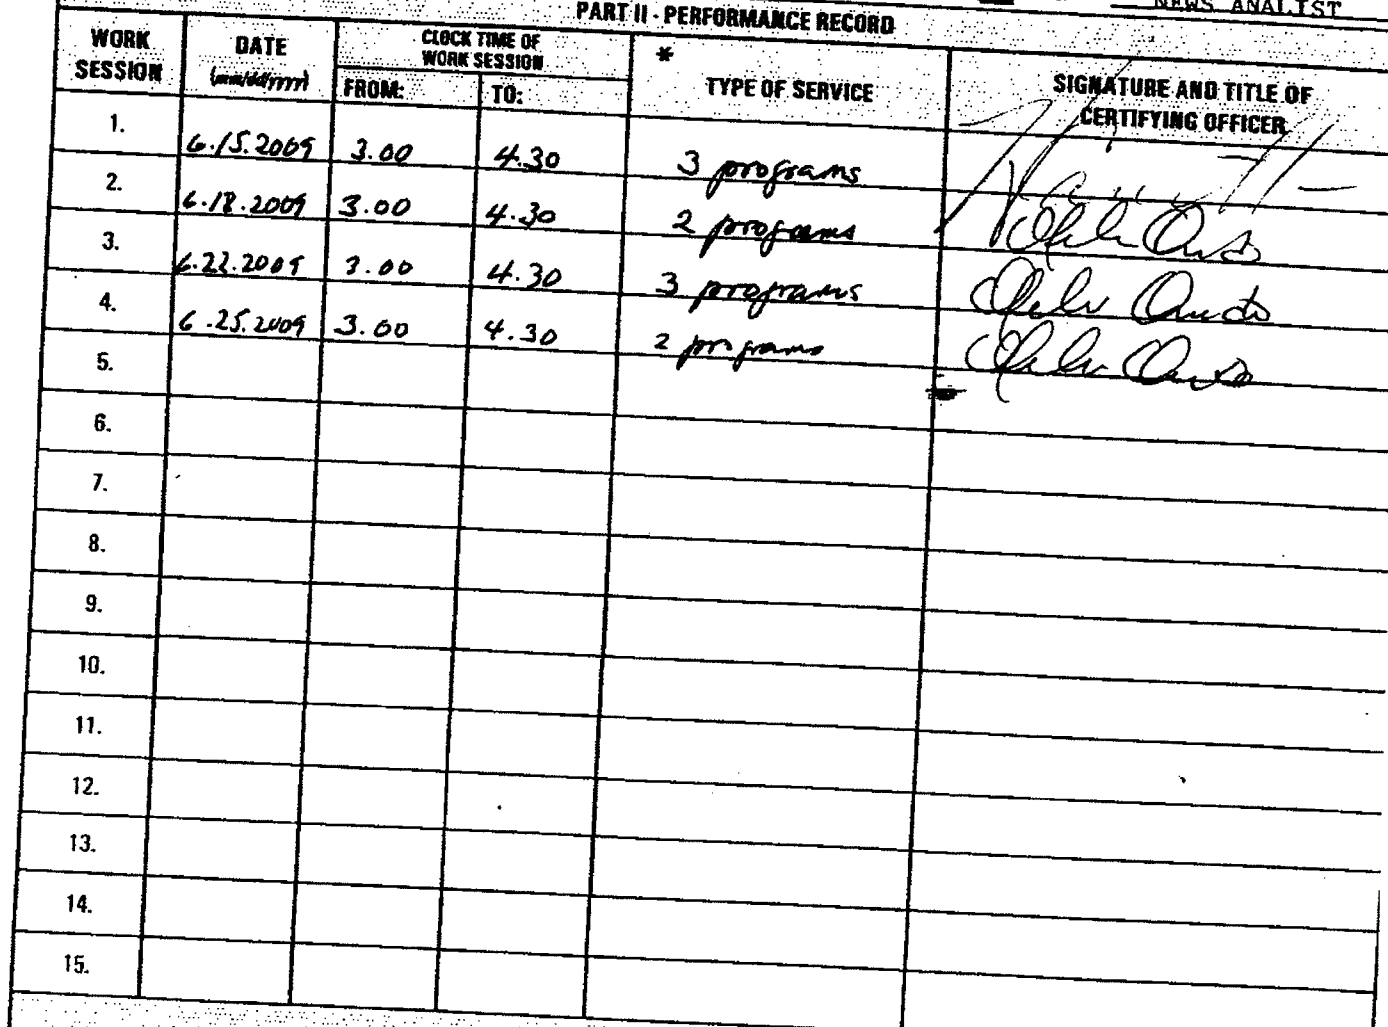 NEWS ANALIST
PART II - PERFORMANCE RECORD
WORK SESSION
DATE
(mm/dd/yyyy)
CLOCK TIME OF WORK SESSION
FROM:
TO:
*
TYPE OF SERVICE
SIGNATURE AND TITLE OF CERTIFYING OFFICER
1. 6.15.2009 3.00 4.30 3 programs
2. 6.18.2009 3.00 4.30 2 programs
3. 6.22.2009 3.00 4.30 3 programs
4. 6.25.2009 3.00 4.30 2 programs
5.
6.
7.
8.
9.
10.
11.
12.
13.
14.
15.